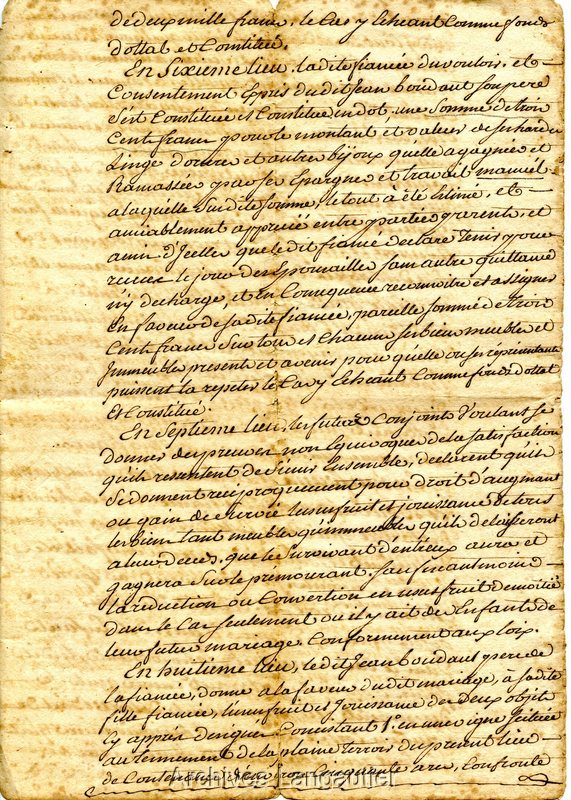 de deux mille francs, le cas y écheant comme fonds
d'ottal et Constitué.
En Sixieme lieu, la dite fiancée du vouloir, et
Consentement Exprès dudit Jean boudaut son pere
s'est Constituée et Constitue en dot, une Somme de trois
Cent francs pour le montant et valeur de ses hardes
Linge d'orure et autres bijoux qu'elle a gagnée et
Ramassée par ses Epargnes et travail manuel
a laquelle Susdite Somme, le tout à été Estimé, et
amiablement apprecié entre parties parents, et
amis d'Icelles que ledit fiancé declare tenir pour
recues le jour des Epousailles sans autre quittance
ny decharge, et en Consequence reconnoitre et assigner
en faveur de sadite fiancée, pareille somme de trois
Cent francs Sur tous et Chacuns ses biens meubles et
Immeubles present et avenir pour quelle ou ses réprésentants
puissent la repeter le Cas y écheant Comme fonds d'ottal
et Constitué.
En Septieme lieu, les futurs Conjoints Voulant se
donner des preuves non Equivoques de la satisfaction
qu'ils ressentent de s'unir Ensemble, declarent qu'ils
Se donnent reciproquement pour droit d'augmant
ou gain de Survie l'usufruit et jouissance de tous
les biens tant meubles qu'immeubles qu'ils delaisseront
a leur deces, que le Survivant d'entreux aura et
gagnera Sur le prémourant, Sauf neanmoins
la reduction ou Convertion en usufruit de moitié
dans le Cas seulement ou il y ait des Enfants de
leur futur mariage, Conformement aux loix.
En huitieme lieu, ledit Jean boudaut pere de
la fiancée, donne a la faveur dudit mariage, à sadite
fille fiancée, l'usufruit et Jouissance des Deux objets
Cy apprès designés Consistant 1.° en une vigne Scituée
au terrement de la plaine terroir du present lieu
de Contenance d'environ Cinquante ares, Confronte
Archives Lancaulier